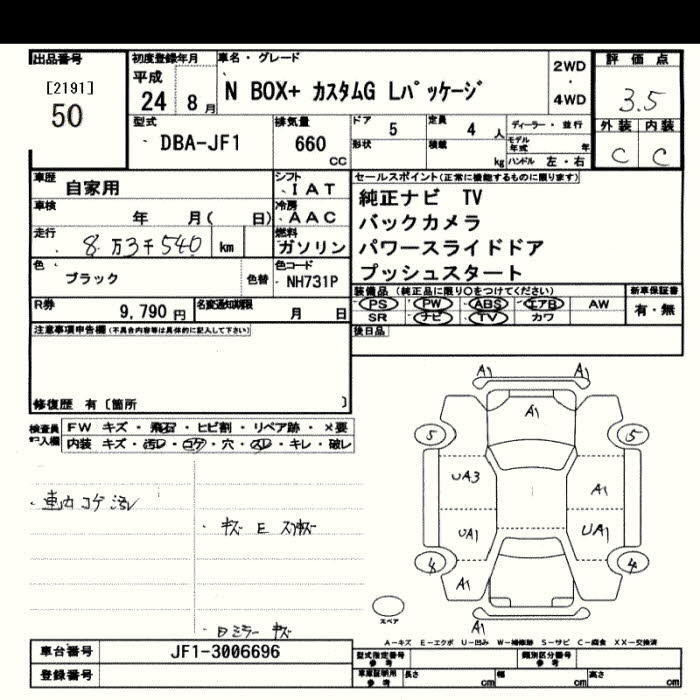 出品番号 初度登録年月 車名・グレード 2WD 評価点
[2191] 平成 ・ 3.5
50 24 8月 N BOX+ カスタムG Lパッケージ 4WD
型式 排気量 ドア 5 定員 4 人 ディーラー・並行 外装 内装
DBA-JF1 660 CC 形状 積載 kg モデル年式 年 C C
ハンドル 左・右
車歴 自家用 シフト IAT セールスポイント(正常に機能するものに限ります)
車検 年 月( 日) 冷房 AAC 純正ナビ TV
走行 8万3千540 km 燃料 ガソリン バックカメラ
パワースライドドア
色 ブラック 色替 色コード NH731P プッシュスタート
R券 9,790円 名変通知期限 月 日 装備品(純正品に限り○をつけてください) 新車保証書
PS PW ABS エアB AW 有・無
SR ナビ TV カワ
注意事項申告欄(不具合内容等は具体的に記入して下さい) 後日品
修復歴 有〔箇所 〕
検査員記入欄 FW キズ・飛石・ヒビ割・リペア跡・×要
内装 キズ・汚レ・コゲ・穴・スレ・キレ・破レ
A1 A1
A1
5 5
UA3 A1
UA1 UA1
4 4
A1
A1
・車内コゲ汚レ
・キズ E スリキズ
スペア
A-キズ E-エクボ U-凹み W-補修跡 S-サビ C-腐食 XX-交換済
車台番号 JF1-3006696 型式指定番号 参考 類別区分番号 参考
登録番号 車庫証明用 参考 長さ cm 幅 cm 高さ cm